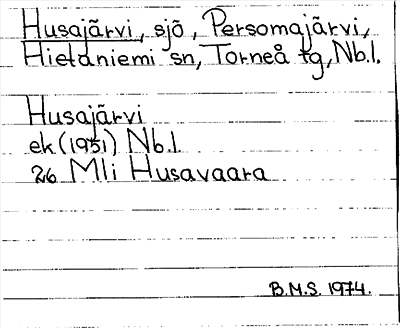 Husajärvi, sjö, Persomajärvi,
Hietaniemi sn, Torneå tg, Nb.l.
Husajärvi
ek (1951) Nb.l.
26 Mli Husavaara
B.M.S. 1974.